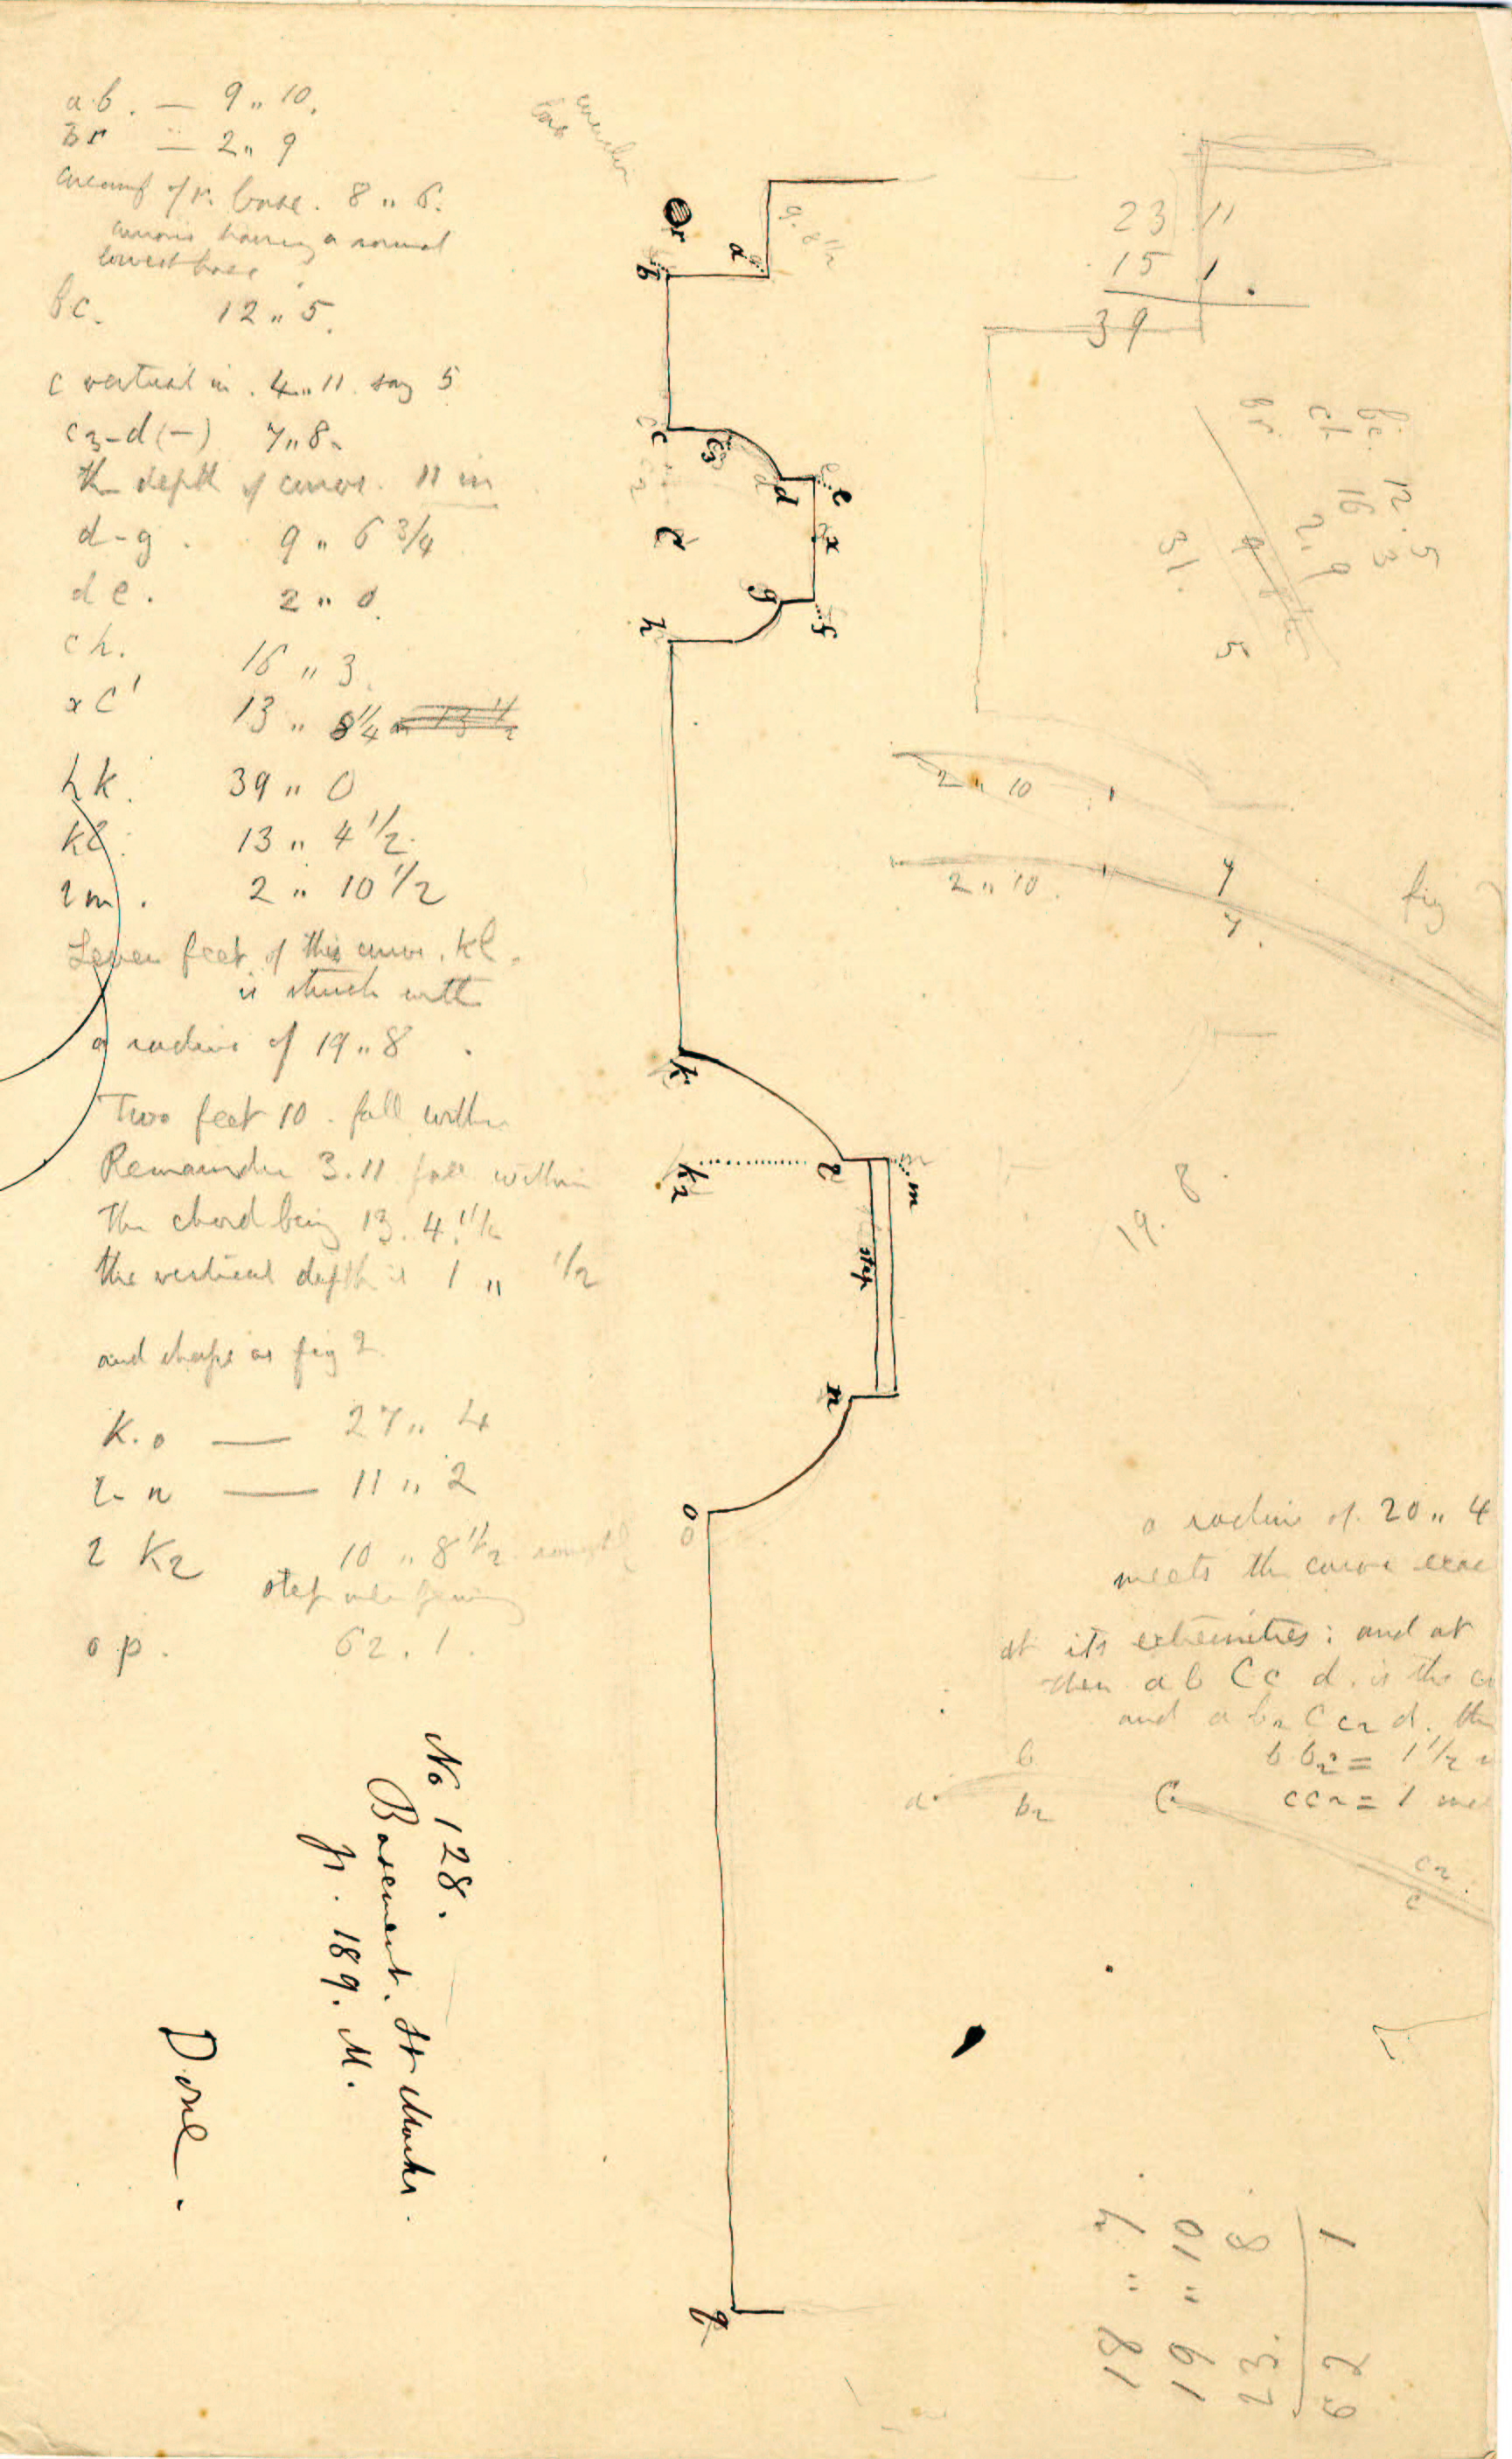 ab. — 9 " 10.
br — 2 " 9
of r. base. 8 " 6.
having a normal
lowest base
bc. 12 " 5.
c vertical in . 4 " 11. say 5
c3-d (-) 7 " 8.
the depth of curve. 11 in
d-g . 9 " 6 3/4
de. 2 " 0.
ch. 16 " 3.
x C' 13 " 8 1/4
hk. 39 " 0
kl. 13 " 4 1/2.
lm. 2 " 10 1/2
Seven feet of this curve. kl.
is struck with
a radius of 19 " 8 .
Two feet 10 . fall within
Remainder 3.11 fall within
The chord being 13. 4. 1/2
the vertical depth is 1 " 1/2
and shape as fig 2
K.o — 27 " 4
l-n — 11 " 2
l K2 10 " 8 1/2
step
op. 62. 1.
No 128.
Basement. St Marks.
p. 189. M.
Done.
r
a
9. 8 1/2
b
c
c3
d
e
x
C
g
f
h
k
k2
l
m
step
n
o
q
23 11
15 1.
39
bc. 12. 5
ch. 16 3
br. 2 " 9
31. 5
2 " 10
2 " 10.
7
7.
fig
19. 8.
a radius of. 20 " 4
meets the curve
at its extremities: and at
then a b C c d. is the
and a b2 C c2 d. the
b b2 = 1 1/2
cc2 = 1
b
a
b2
C
c2
c
18 " 7
19 " 10
23. 8
62 1